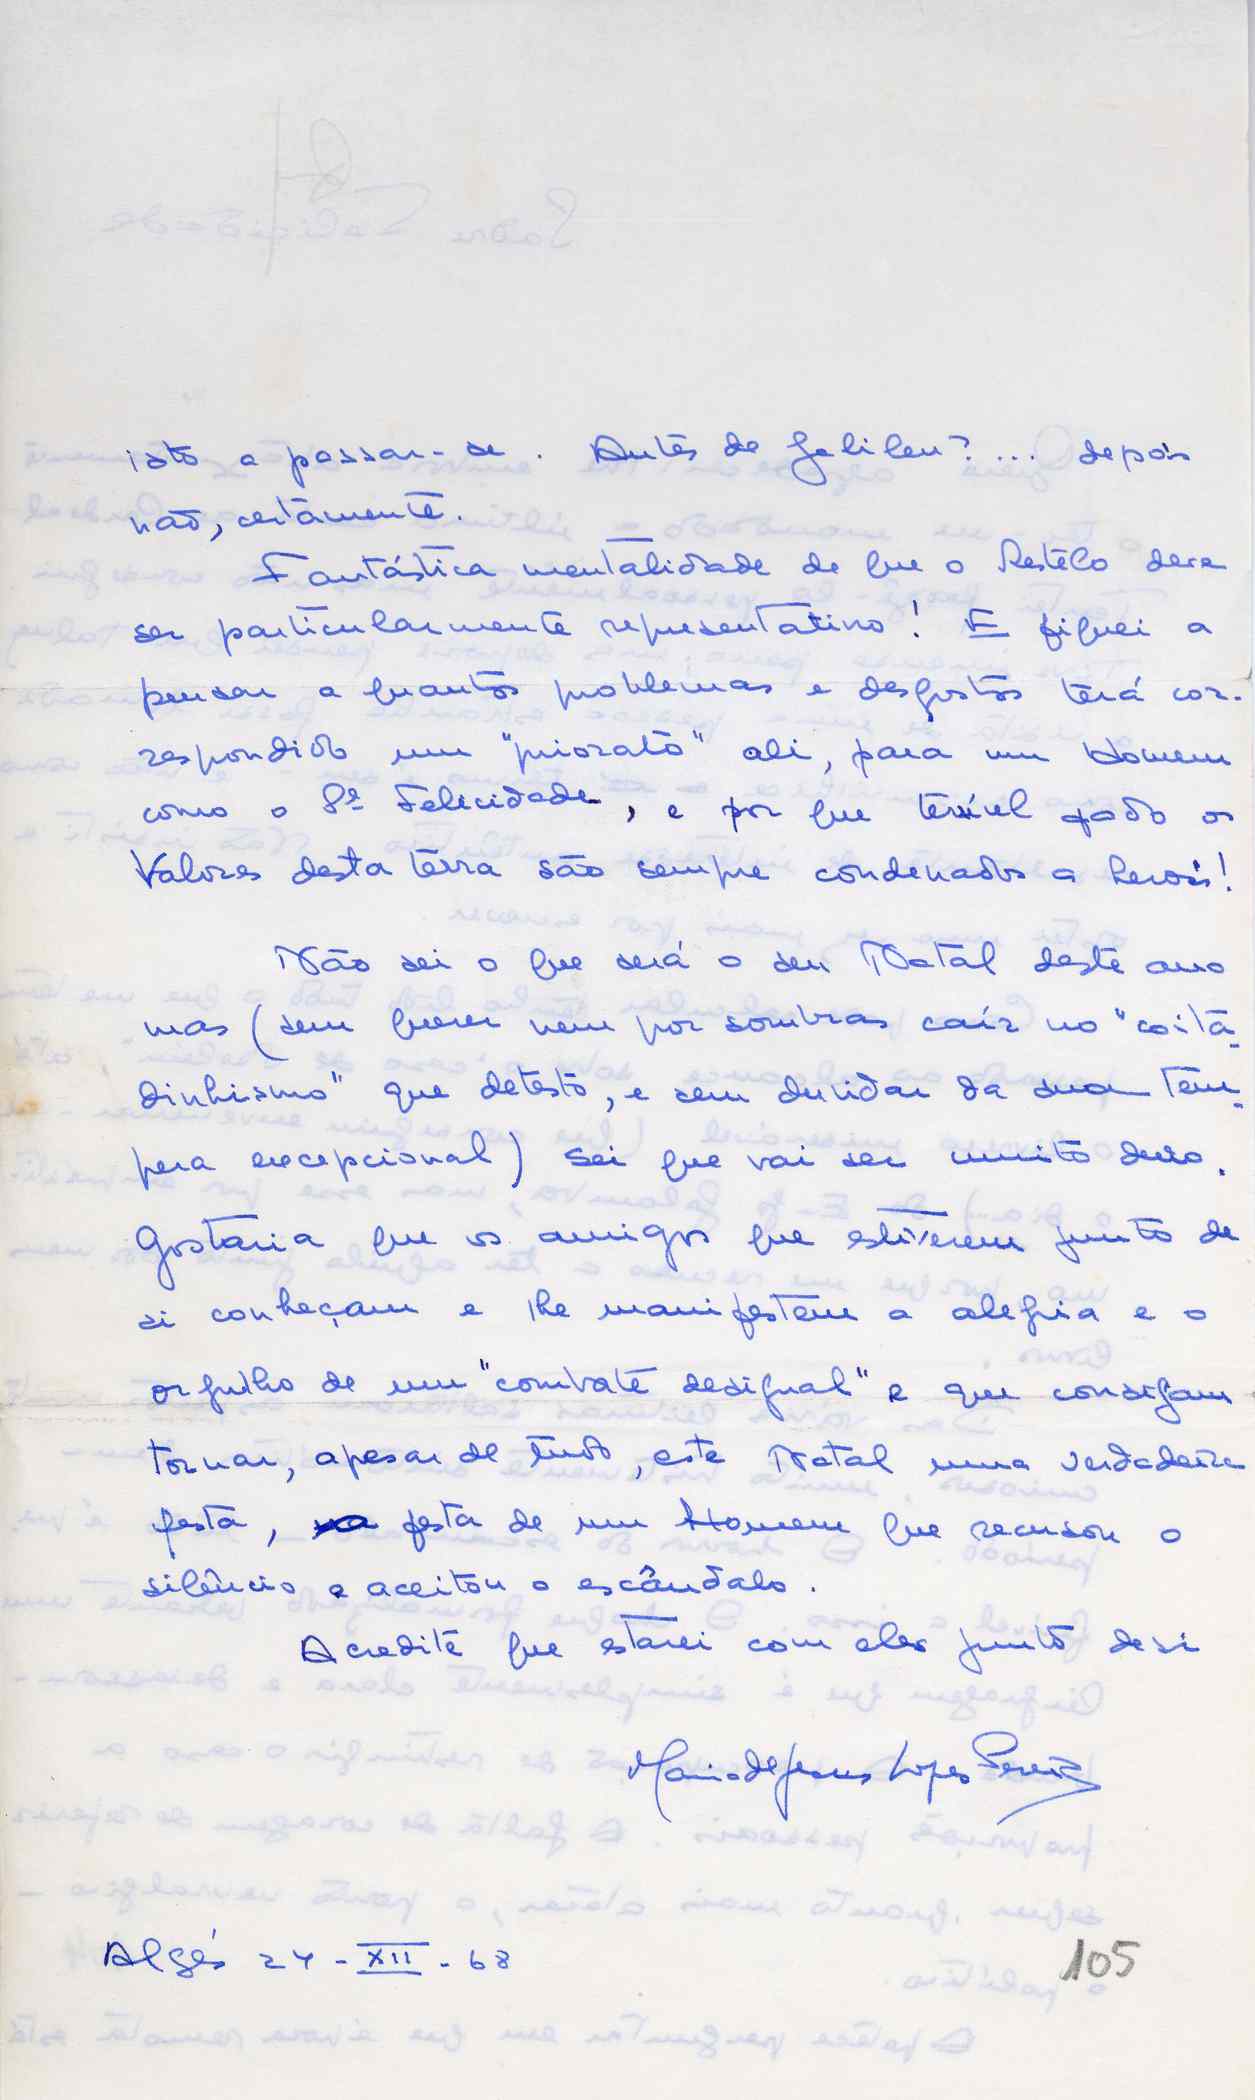 isto a passar-se. Antes de Galileu?... depois
não, certamente.
Fantástica mentalidade de que o Restêlo deve
ser particularmente representativo! E fiquei a
pensar a quantos problemas e desgostos terá cor-
respondido um "priorato" ali, para um Homem
como o Pe Felicidade, e por que terrível fado os
Valores desta terra são sempre condenados a heróis!
Não sei o que será o seu Natal deste ano
mas (sem querer nem por sombras caír no "coita-
dinhismo" que detesto, e sem duvidar da sua têm-
pera excepcional) sei que vai ser muito duro.
Gostaria que os amigos que estiverem junto de
si conheçam e lhe manifestem a alegria e o
orgulho de um "combate desigual" e que consigam
tornar, apesar de tudo, este Natal uma verdadeira
festa, festa de um Homem que recusou o
silêncio e aceitou o escândalo.
Acredite que estarei com eles junto de si
Maria de Jesus Lopes Pereira
Algés 24-XII-68
105